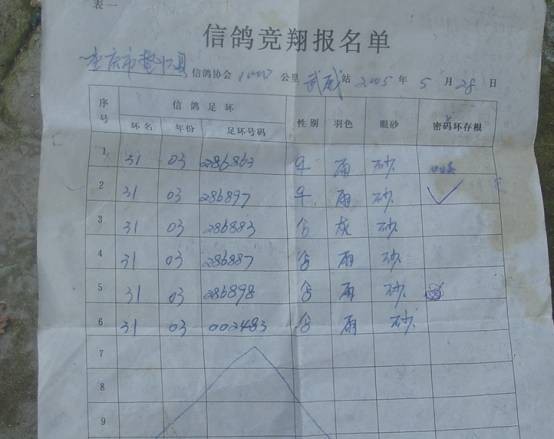 表一
信鸽竞翔报名单
重庆市垫江县信鸽协会 1000 公里 武威 站 2005 年 5 月 28 日
序号 信鸽足环 性别 羽色 眼砂 密码环存根
环名 年份 足环号码
1 31 03 286863 雨 砂
2 31 03 286897 雨 砂 ✓
3 31 03 286883 灰 砂
4 31 03 286887 雨 砂
5 31 03 286898 雨 砂
6 31 03 002483 雨 砂
7
8
9